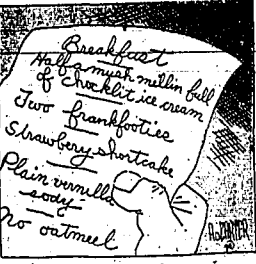 Breakfust
Half a mush millin full
of chocklit ice cream
Two frankfooties
Strawbery shortcake
Plain vernella
sody
No oatmeel